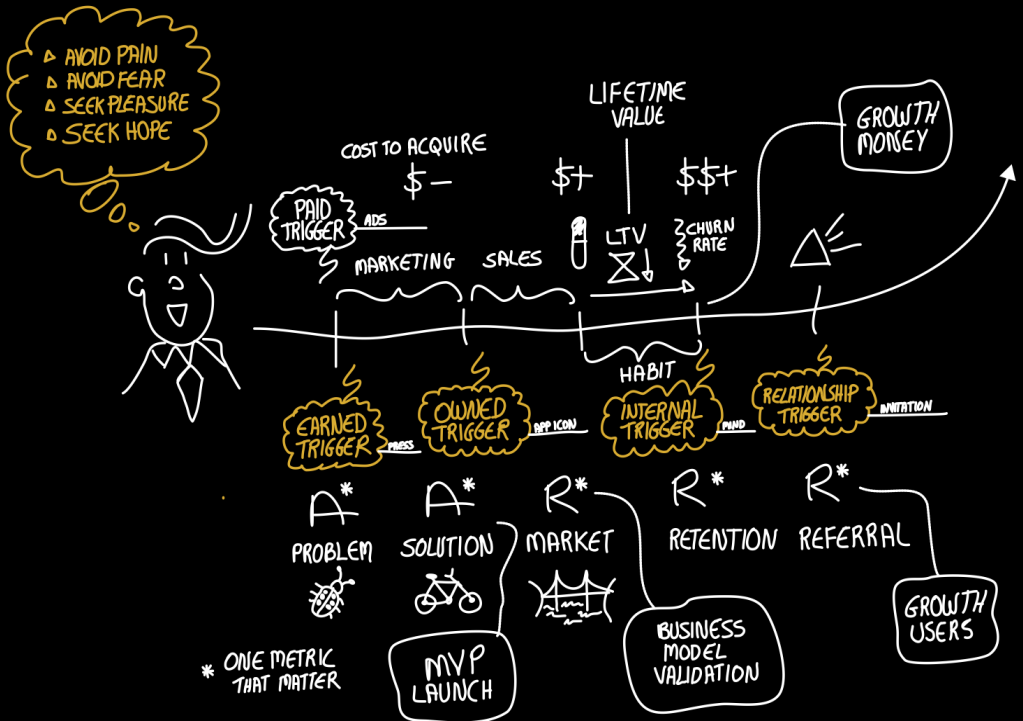 AVOID PAIN
AVOID FEAR
SEEK PLEASURE
SEEK HOPE
LIFETIME
VALUE
GROWTH
MONEY
COST TO ACQUIRE
$-
$+
$$+
PAID
TRIGGER
ADS
LTV
CHURN
RATE
MARKETING
SALES
HABIT
EARNED
TRIGGER
PRESS
OWNED
TRIGGER
APP ICON
INTERNAL
TRIGGER
RELATIONSHIP
TRIGGER
INVITATION
A*
A*
R*
R*
R*
PROBLEM
SOLUTION
MARKET
RETENTION
REFERRAL
* ONE METRIC
THAT MATTER
MVP
LAUNCH
BUSINESS
MODEL
VALIDATION
GROWTH
USERS